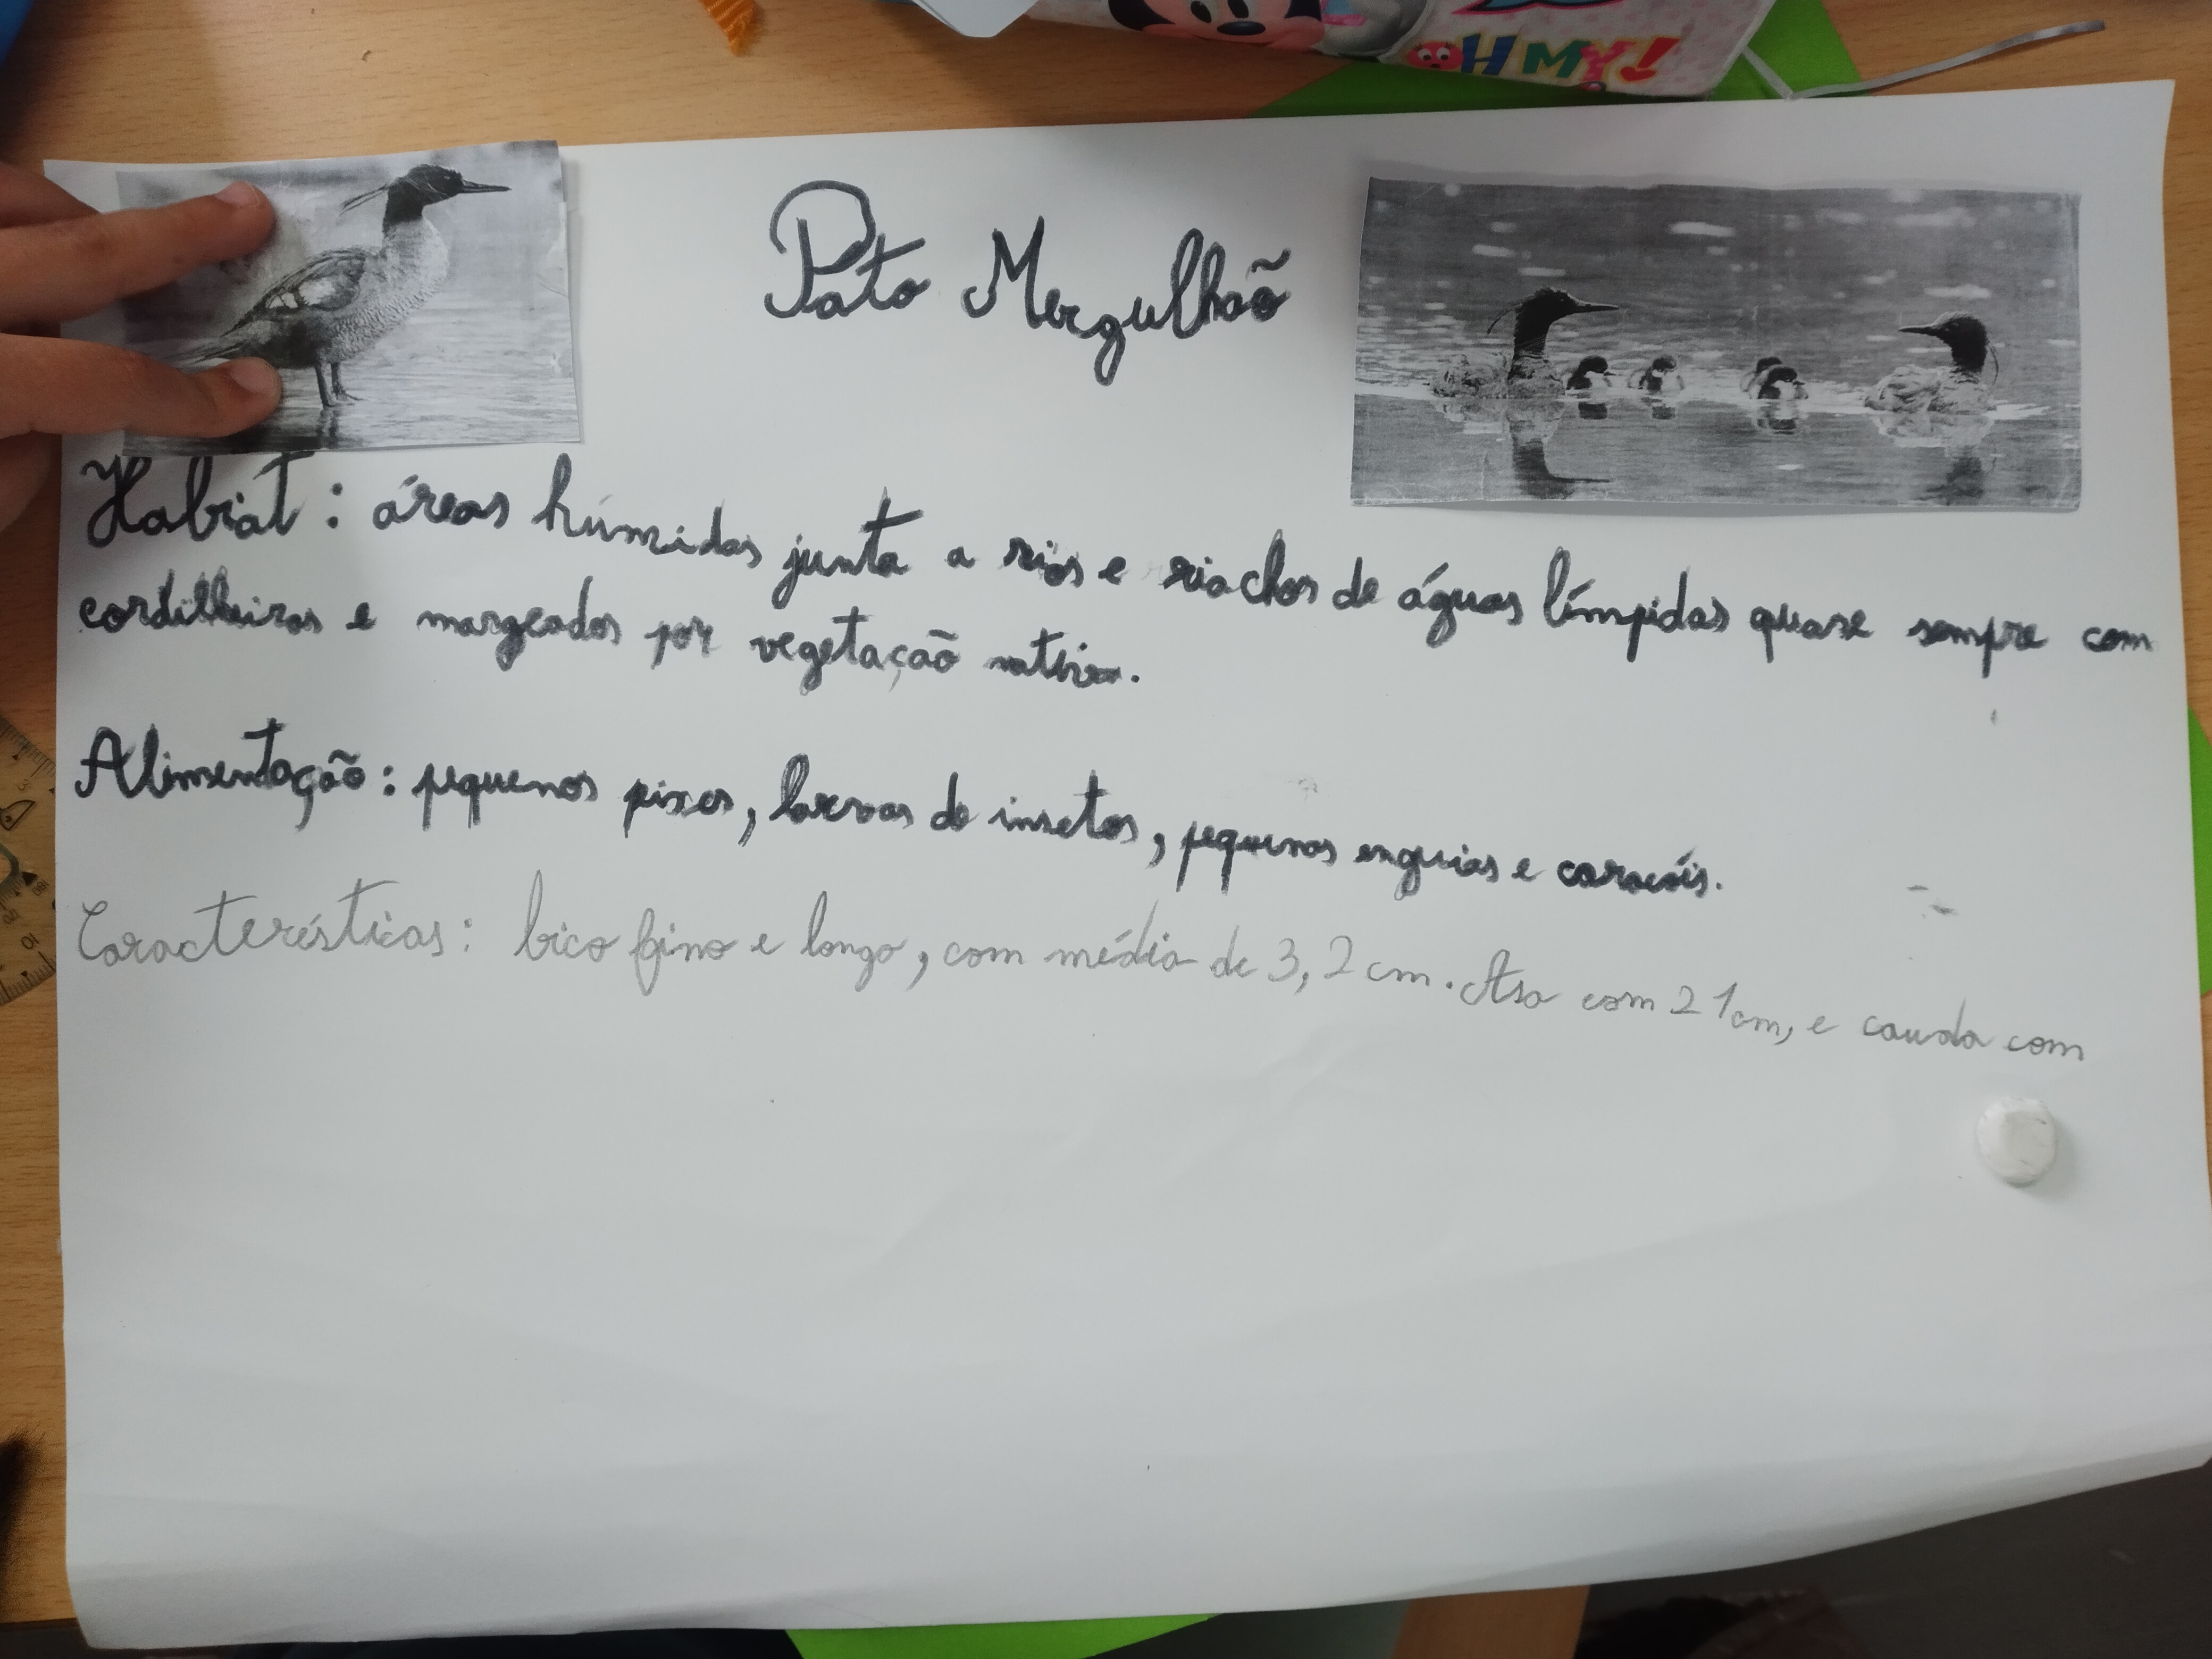 OH MY!
Pato Mergulhão
Habiat : áreas húmidas junta a rios e riachos de águas límpidas quase sempre com
cordilheiras e margeados por vegetação nativa.
Alimentação : pequenos pixes, larvas de insetos, pequenas enguias e caracóis.
Características : bico fino e longo, com média de 3,2 cm. Asa com 21cm, e cauda com